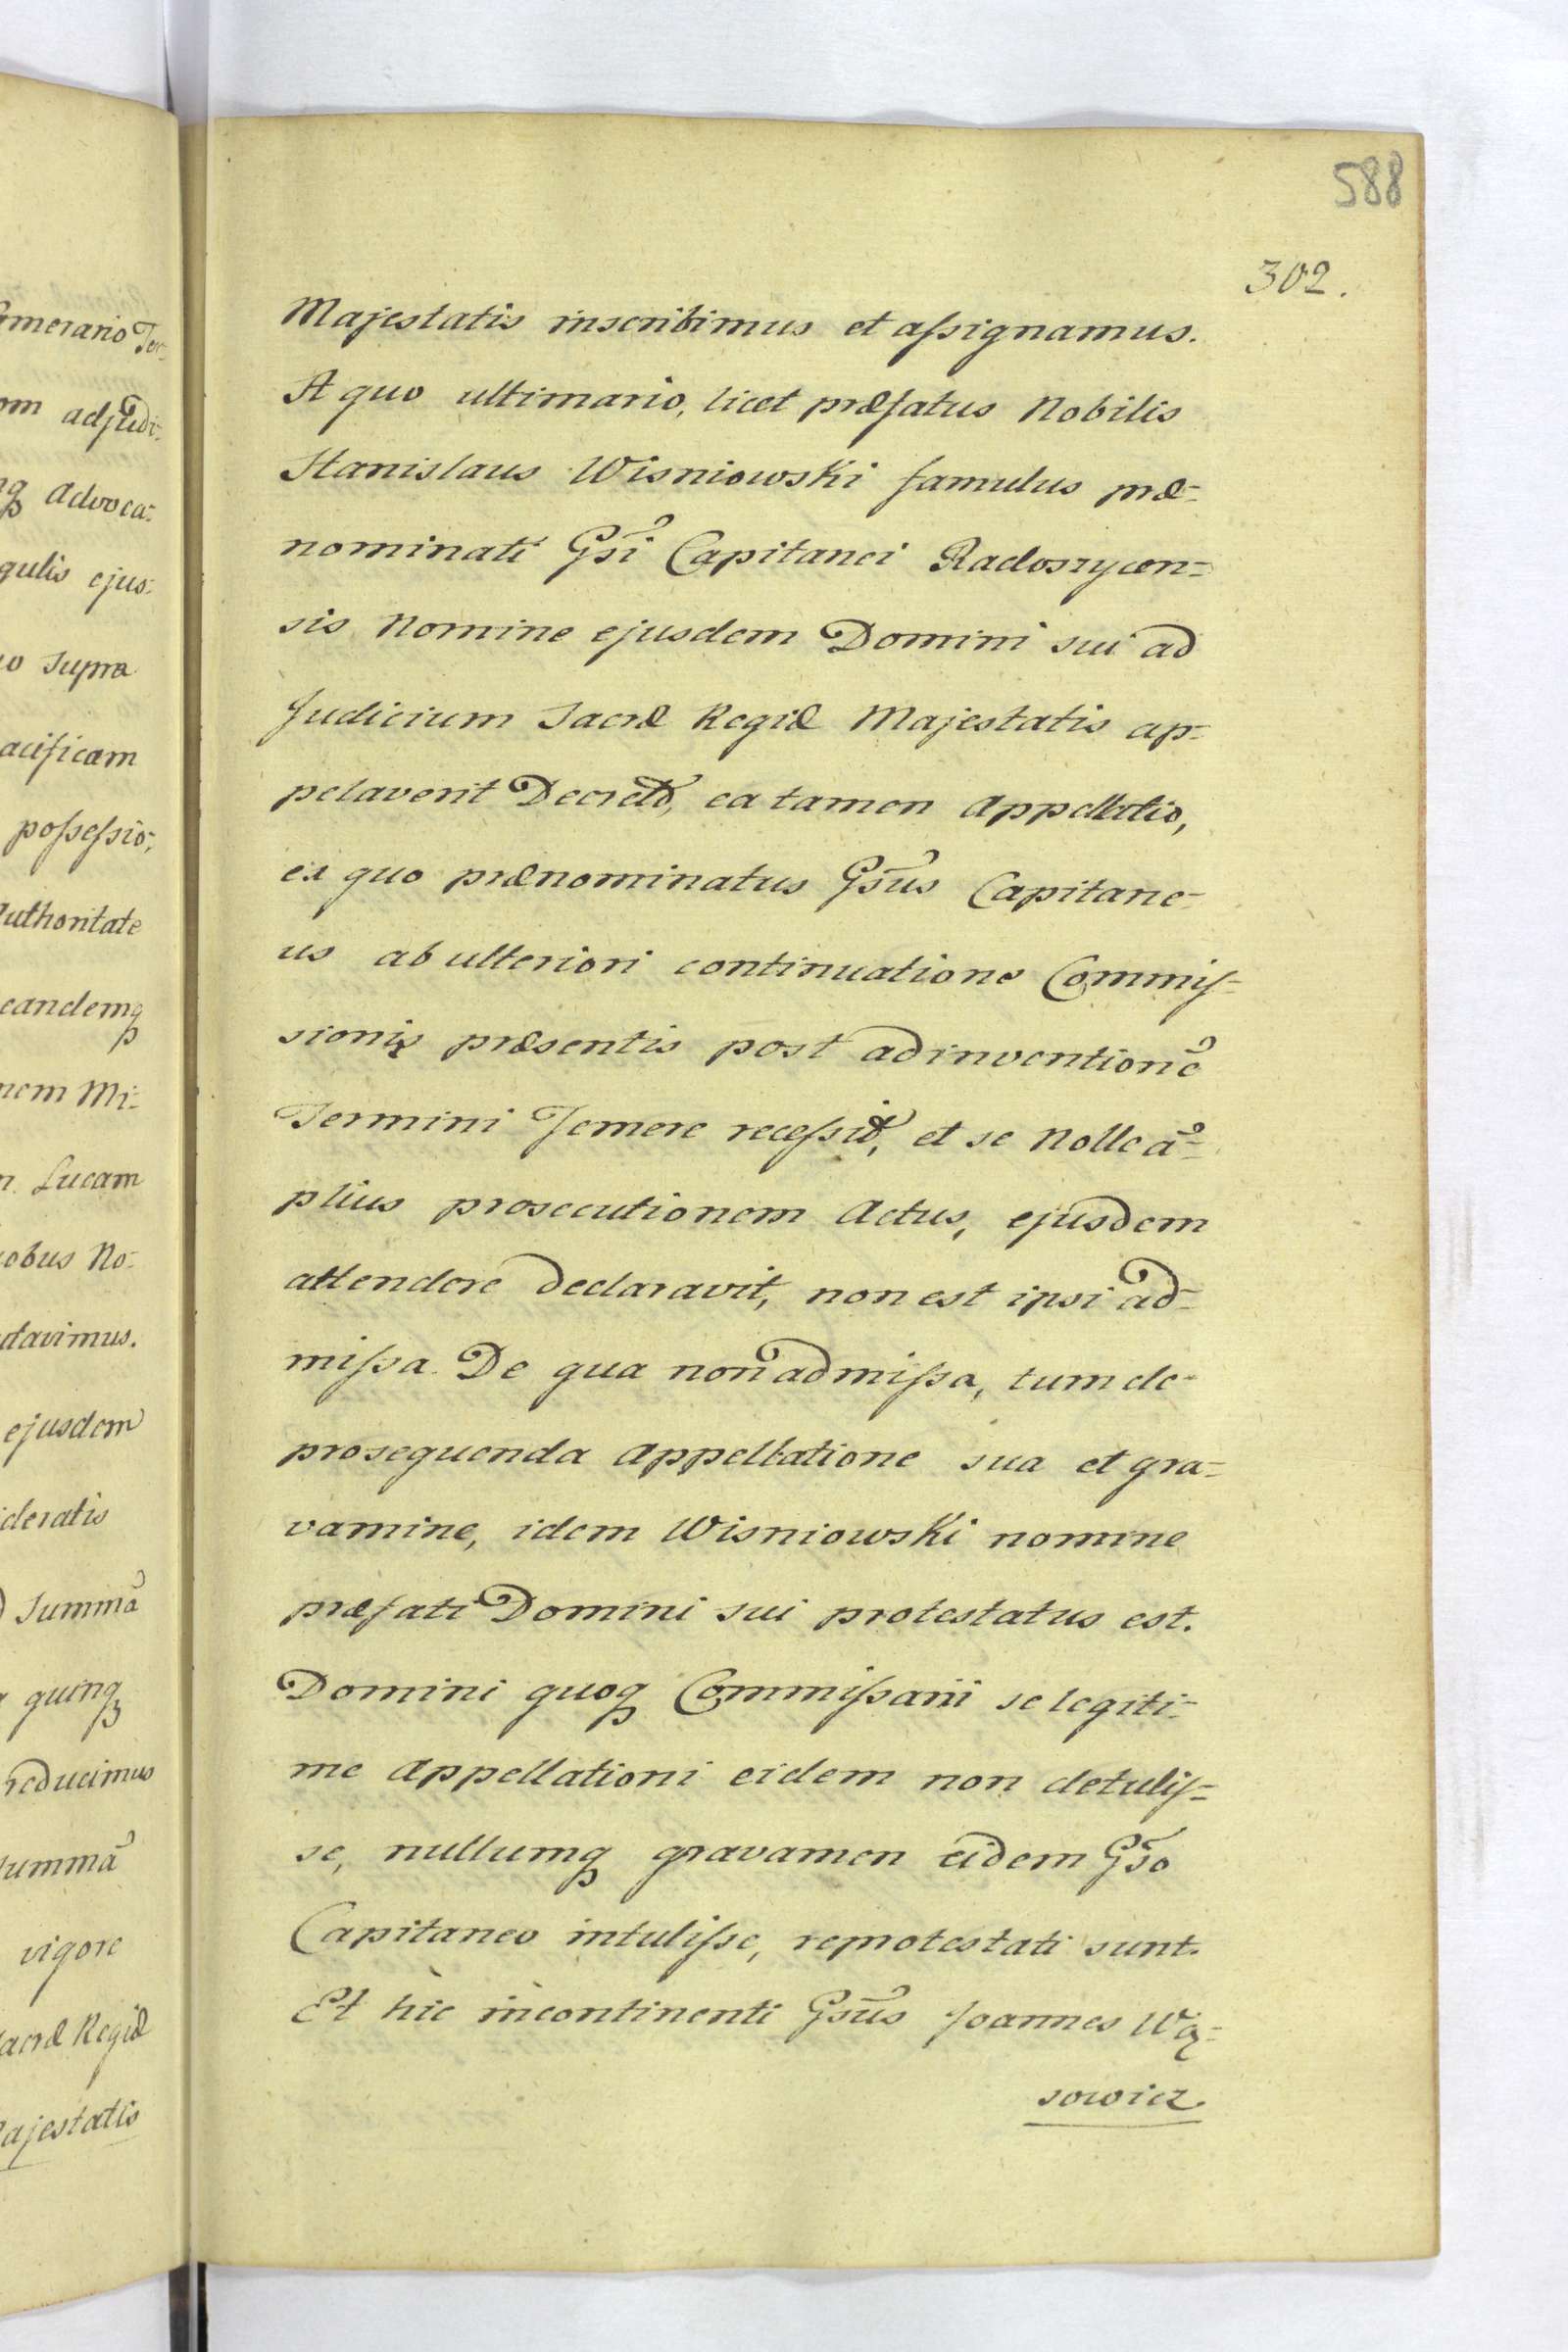 588
302.
Majestatis inscribimus et assignamus.
A quo ultimario, licet præfatus Nobilis
Stanislaus Wisniowski famulus præ-
nominati Gsi Capitanei Radoszycen-
sis Nomine ejusdem Domini sui ad
Judicium Sacræ Regiæ Majestatis ap-
pelaverit Decreto, ea tamen Appellatio,
ex quo prænominatus Gsus Capitane-
us ab ulteriori continuatione Commis-
sionis præsentis post adinventionẽ
Termini Temere recessit, et se Nolle ã-
plius prosecutionem Actus, ejusdem
attendere declaravit, non est ipsi ad-
missa. De qua non admissa, tum de
prosequenda Appellatione sua et gra-
vamine, idem Wisniowski nomine
præfati Domini sui protestatus est.
Domini quoq Commissarii se legiti-
me Appellationi eidem non detulis-
se, nullumq gravamen eidem Gso
Capitaneo intulisse, reprotestati sunt.
Et hìc incontinenti Gsus Joannes Wą-
sowicz
merario Ter-
om adjudi-
q Advoca-
gulis ejus-
o supra
acificam
possessio-
Authoritate
eandemq
nem Mi-
Lucam
obus No-
davimus.
ejusdem
ideratis
Summã
quinq
reducimus
summã
vigore
Sacræ Regiæ
Majestatis